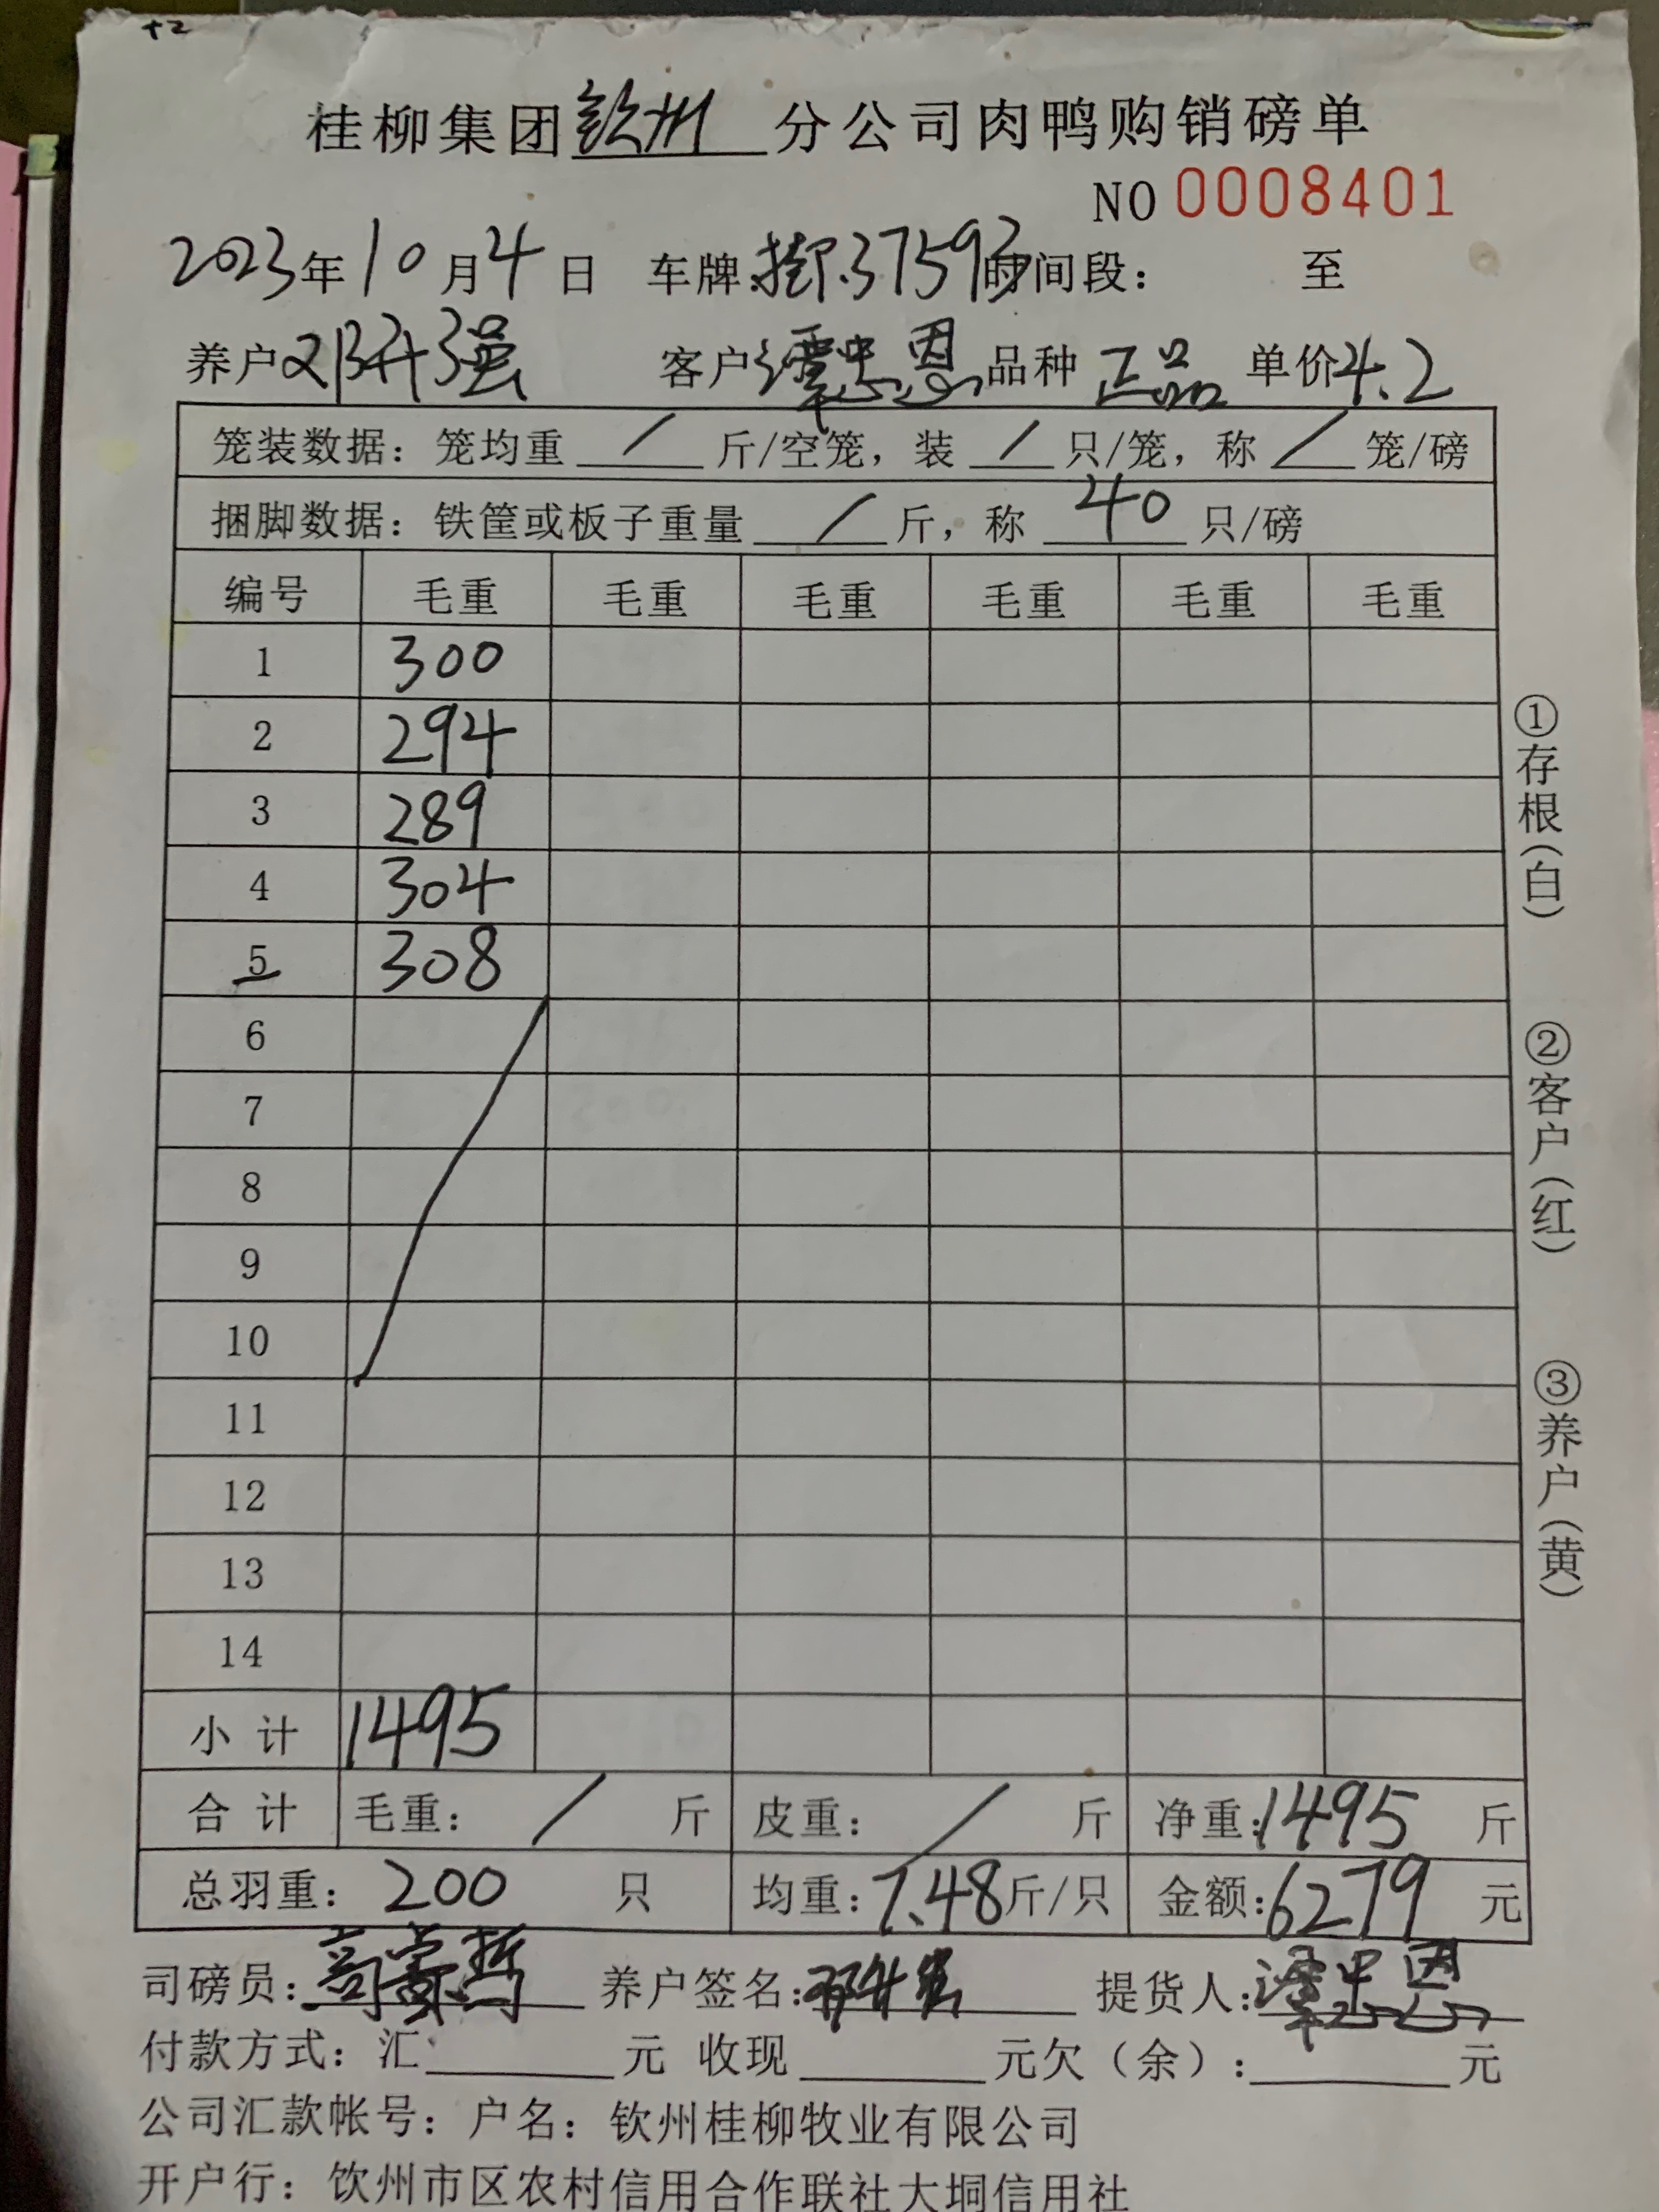 +2
桂柳集团钦州分公司肉鸭购销磅单
NO 0008401
2023年10月4日 车牌:桂P.37593时间段: 至
养户邓升强 客户谭忠恩品种正品 单价4.2
笼装数据:笼均重 / 斤/空笼,装 / 只/笼,称 / 笼/磅
捆脚数据:铁筐或板子重量 / 斤,称 40 只/磅
编号 毛重 毛重 毛重 毛重 毛重 毛重
1 300
2 294
3 289
4 304
5 308
6
7
8
9
10
11
12
13
14
小计 1495
合计 毛重: / 斤 皮重: / 斤 净重:1495 斤
总羽重: 200 只 均重:7.48斤/只 金额:6279 元
司磅员: 养户签名: 提货人:谭忠恩
付款方式:汇 元 收现 元欠(余): 元
公司汇款帐号:户名:钦州桂柳牧业有限公司
开户行:饮州市区农村信用合作联社大垌信用社
①存根(白)
②客户(红)
③养户(黄)